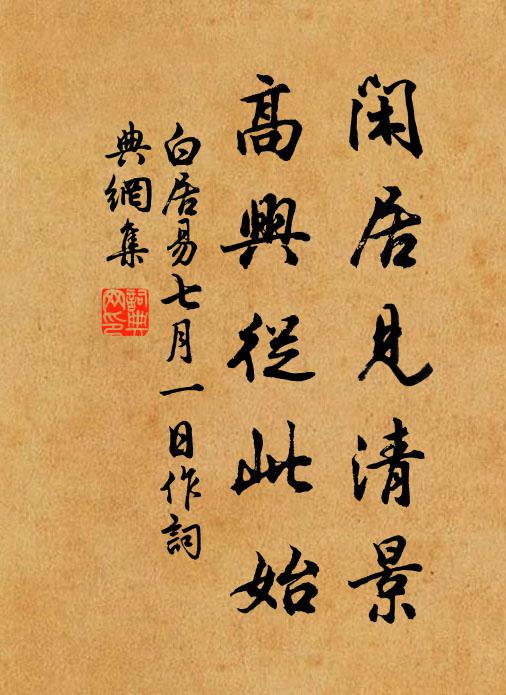 閑居見清景
高興從此始
白居易七月一日作詞
典網集
詞典
网印